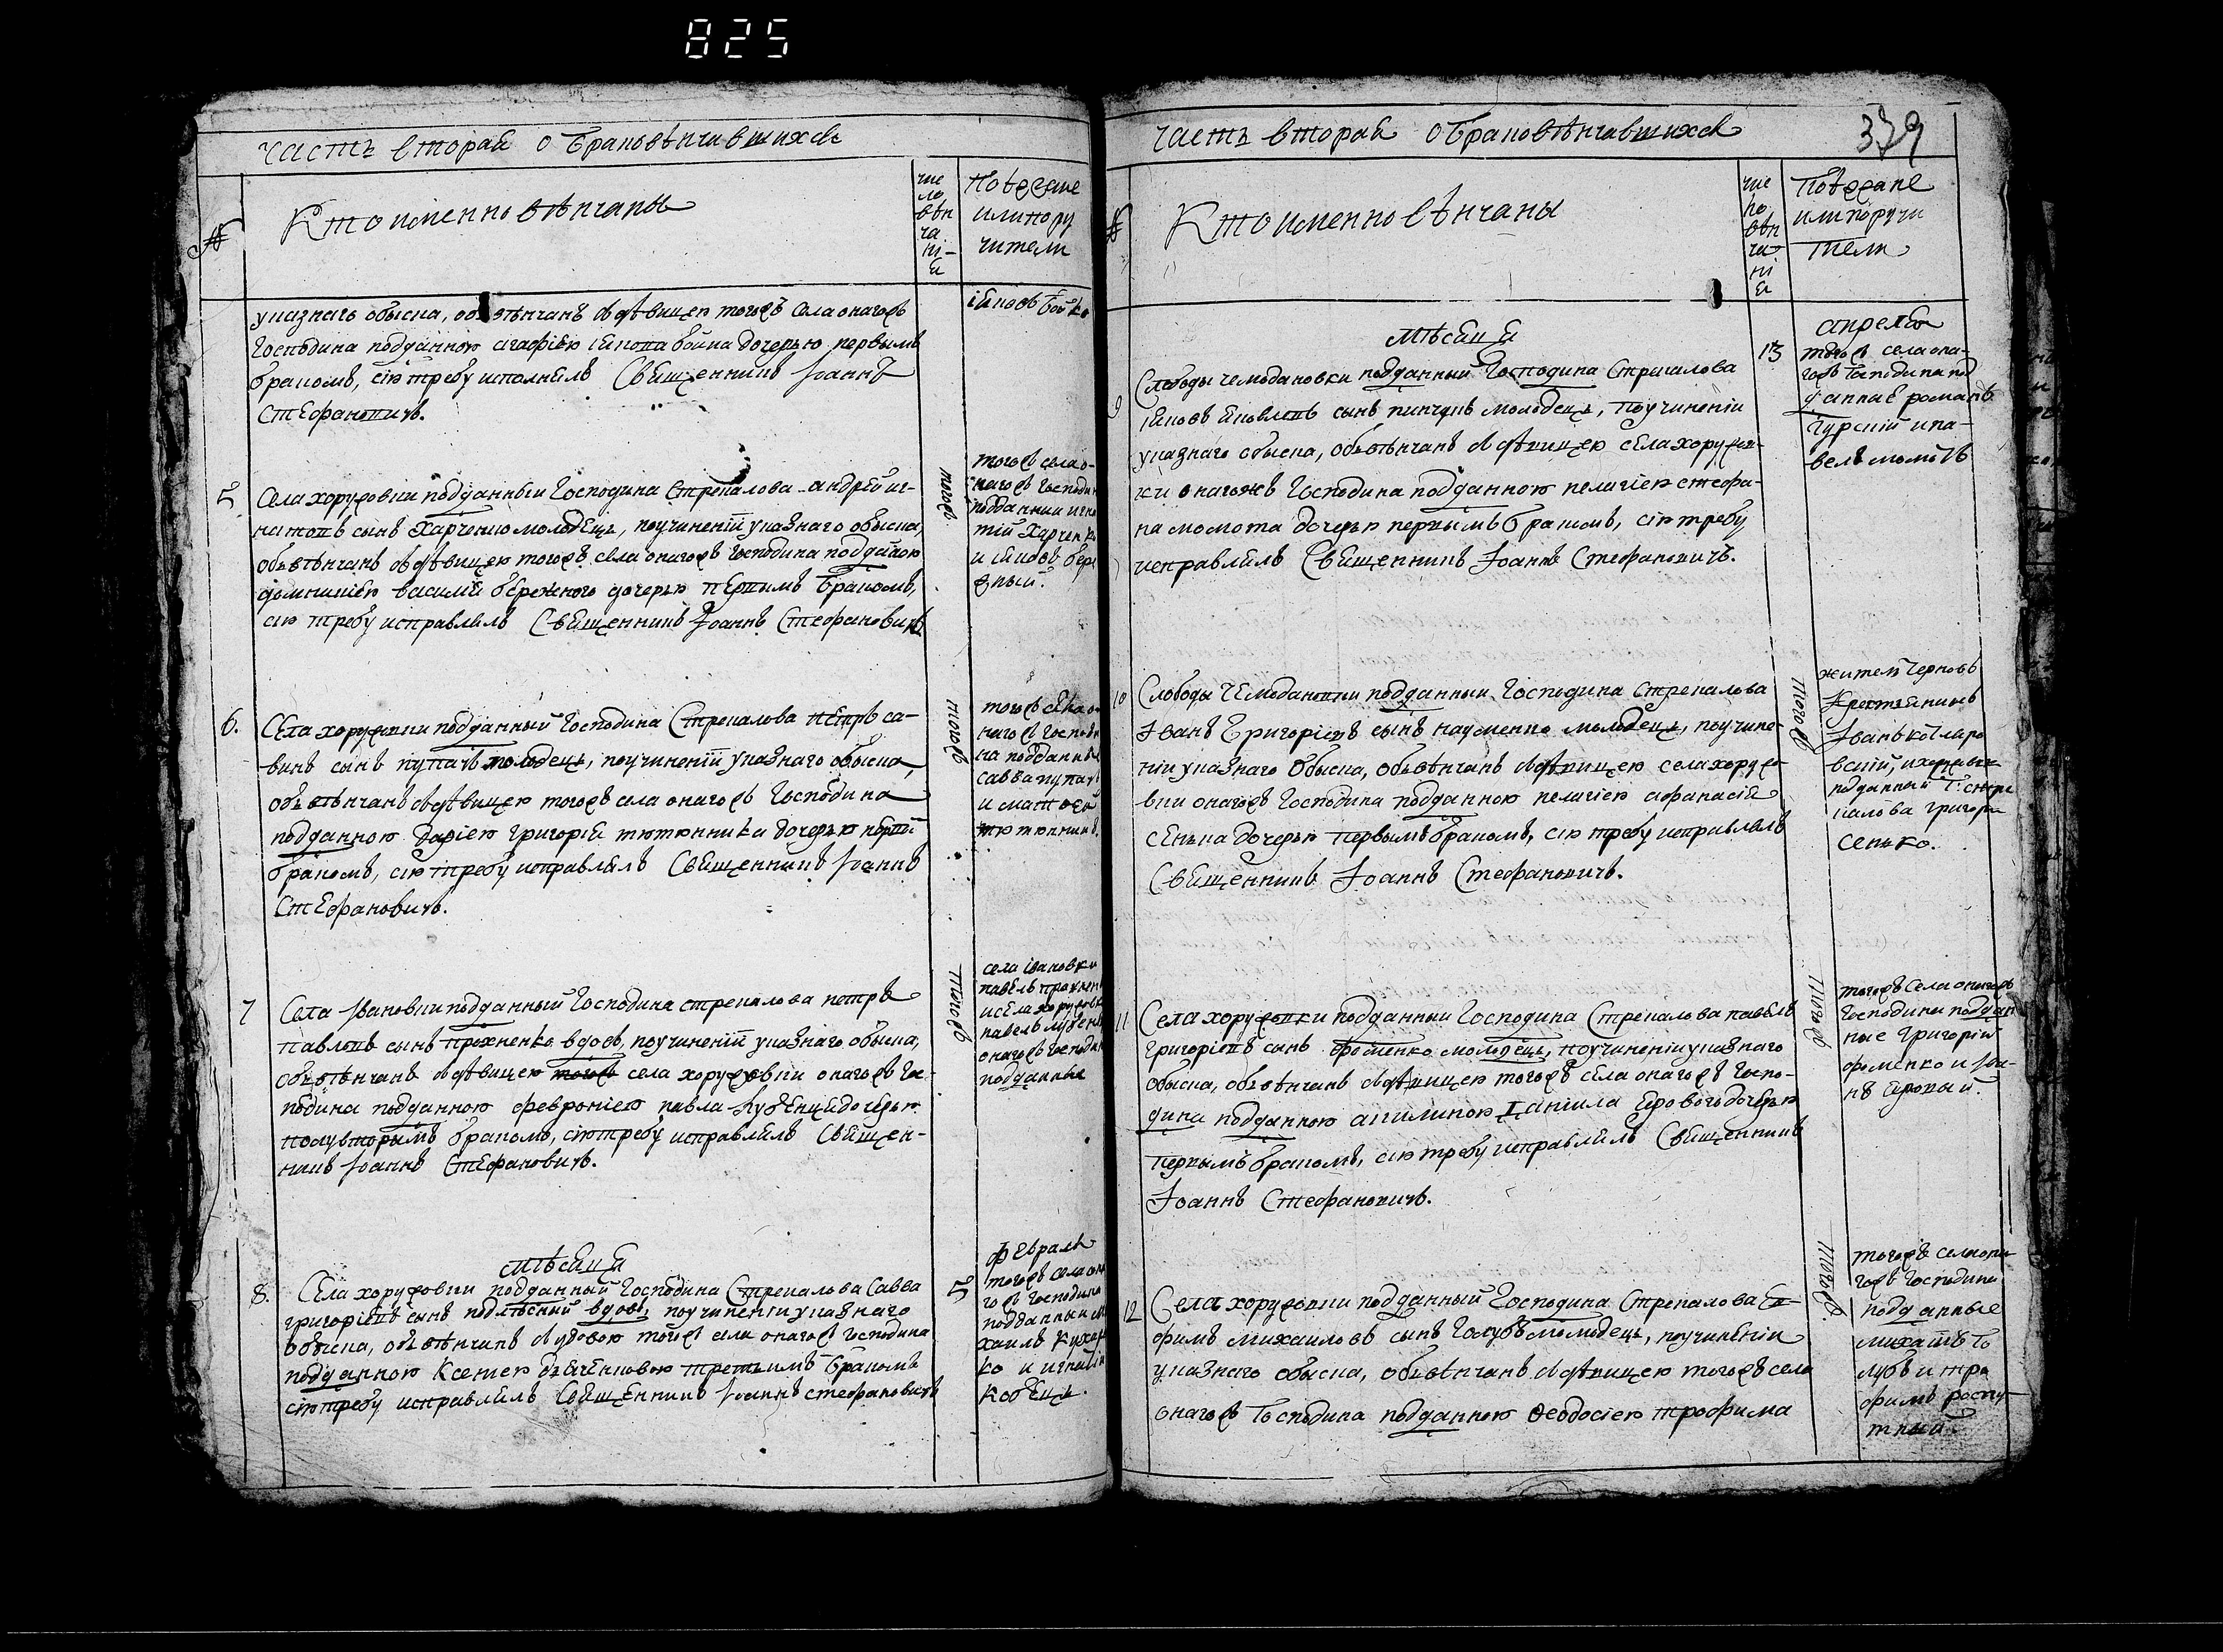 825
часть вторая о браковѣнчавшихся
№
Кто именно вѣнчаны
чи
сло
вѣн
ча
ні-
я
Поѣзжане
или пору
чители
указнаго обыска, обвѣнчанъ з дѣвицею тогожъ села оногожъ
Господина подданною агафіею дочерью первымъ
бракомъ, сію требу исполнялъ Священникъ Іоаннъ
Стефановичъ.
5
Села хоружовки подданный Господина Стрекалова андрей иг-
натовъ сынъ Харченко молодецъ, по учиненіи указнаго обыска,
обвѣнчанъ з дѣвицею тогожъ села оногожъ Господина подданною
домникіею василія бережного дочерью первымъ бракомъ,
сію требу исправлялъ Священникъ Іоаннъ Стефановичъ
тогожъ
тогожъ села о-
ногожъ Господин
подданнии игна
тій Харченко
и яковъ бере
жный.
6.
Села хоружовки подданный Господина Стрекалова петръ са-
винъ сынъ пугачъ молодецъ, по учиненіи указнаго обыска,
обвѣнчанъ з дѣвицею тогожъ села оногожъ Господина
подданною Даріею григорія тютюнника дочерью первымъ
бракомъ, сію требу исправлялъ Священникъ Іоаннъ
Стефановичъ.
тогожъ
тогожъ села о
ногожъ Господи
на подданные
савва пугачъ
и матвей
тютюнник
7
Села Ивановки подданный Господина стрекалова петръ
павловъ сынъ прохненко вдовъ, по учиненіи указнаго обыска,
обвѣнчанъ з дѣвицею села хоружовки оногожъ Гос-
подина подданною февроніею павла дочерью
полувторымъ бракомъ, сію требу исправлялъ Священ-
никъ Іоаннъ Стефановичъ.
тогожъ
села івановки
павелъ прохнен
и села хоружовк
павелъ
оногожъ господин
подданные
мѣсяца
февраля
8.
Села хоружовки подданный Господина Стрекалова Савва
григоріевъ сынъ подлѣсный вдовъ, по учиненіи указнаго
обыска, обвѣнчанъ з вдовою тогожъ села оногожъ Господина
подданною Ксеніею третьимъ бракомъ
сію требу исправлялъ Священникъ Іоаннъ стефановичъ
5
тогожъ села оно
гожъ господина
подданнии ми
хаилъ Кухар
ко и игнатій
кобецъ.
часть вторая о браковѣнчавшихся
379
№
Кто именно вѣнчаны
чи
сло
вѣн
ча
ні
я
Поѣзжане
или поручи
тели
мѣсяца
апреля
9
Слободы чемодановки подданный Господина Стрикалова
яковъ яковлевъ сынъ молодецъ, по учиненіи
указнаго обыска, обвѣнчанъ з дѣвицею села хоружов-
ки оногожъ Господина подданною пелагіею стефа-
на момота дочерью первымъ бракомъ, сію требу
исправлялъ Священникъ Іоаннъ Стефановичъ.
13
тогожъ села оно-
гожъ Господина под
данніе романъ
гурскій и па-
велъ момотъ
10
Слободы Чемодановки подданный Господина Стрекалова
Іванъ Григоріевъ сынъ науменко молодецъ, по учине-
ніи указнаго Обыска, обвѣнчанъ з дѣвицею села хоружо-
вки оногожъ Господина подданною пелагіею афанасія
сенька дочерью первымъ бракомъ, сію требу исправлялъ
Священникъ Іоаннъ Стефановичъ.
тогожъ
житель
Крестянинъ
Іванъ
подданный Г: стре
калова григори
сенько.
11
Села хоружовки подданный Господина Стрекалова павелъ
григоріевъ сынъ фоменко молодецъ, по учиненіи указнаго
обыска, обвѣнчанъ з дѣвицею тогожъ села оногожъ Госпо-
дина подданною акилиною даніила ярового дочерью
первымъ бракомъ, сію требу исправлялъ Священникъ
Іоаннъ Стефановичъ.
тогожъ
тогожъ села оногожъ
Господина поддан
ные Григорій
фоменко и Іоа-
нъ яровый.
12
Села хоружовки подданный Господина Стрекалова Ео-
фимъ михаиловъ сынъ Голубъ молодецъ, по учиненіи
указнаго обыска, обвѣнчанъ з дѣвицею тогожъ села
оногожъ Господина подданною Ѳеодосіею трофима
тогожъ
тогожъ села оно
гожъ Господина
подданные
михаилъ го
лубъ и тро
фимъ роспу
тный